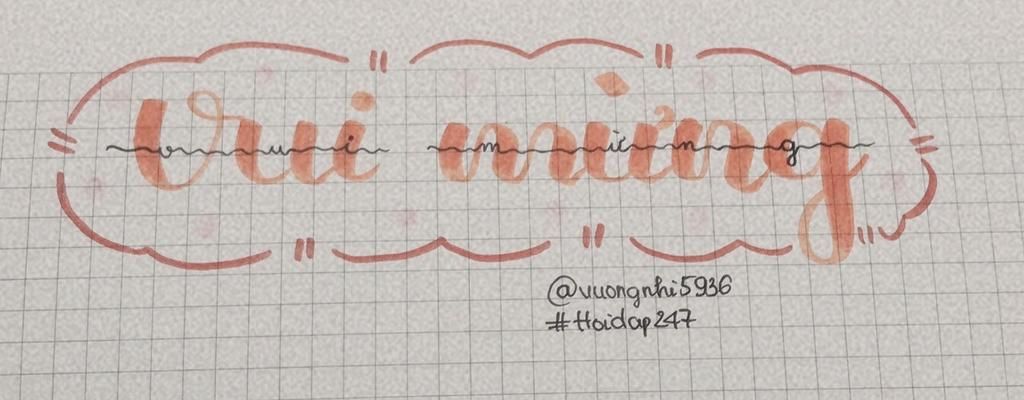 Vui mừng
vui mừng
@vuongnhi5936
#Hoidap247